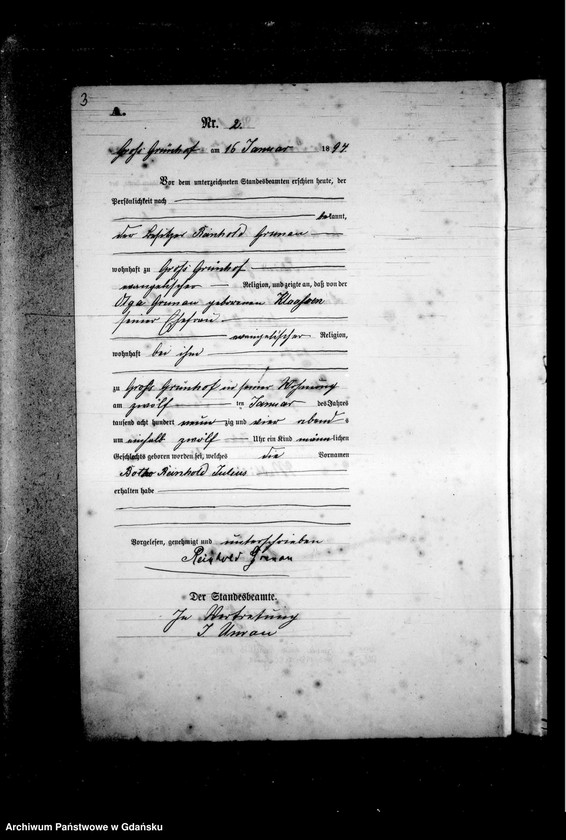 3
A.
Nr. 2.
Groß Grünhof am 16 Januar 1894
Vor dem unterzeichneten Standesbeamten erschien heute, der
Persönlichkeit nach
bekannt,
der Besitzer Reinhold Grunau
wohnhaft zu Groß Grünhof
evangelischer Religion, und zeigte an, daß von der
Olga Grunau geborenen Klaassen
seiner Ehefrau
evangelischer Religion,
wohnhaft bei ihm
zu Groß Grünhof in seiner Wohnung
am zwölf ten Januar des Jahres
tausend acht hundert neun zig und vier abends
um einhalb zwölf Uhr ein Kind männlichen
Geschlechts geboren worden sei, welches die Vornamen
Botho Reinhold Julius
erhalten habe
Vorgelesen, genehmigt und unterschrieben
Reinhold Grunau
Der Standesbeamte.
In Vertretung
J Unrau
Archiwum Państwowe w Gdańsku